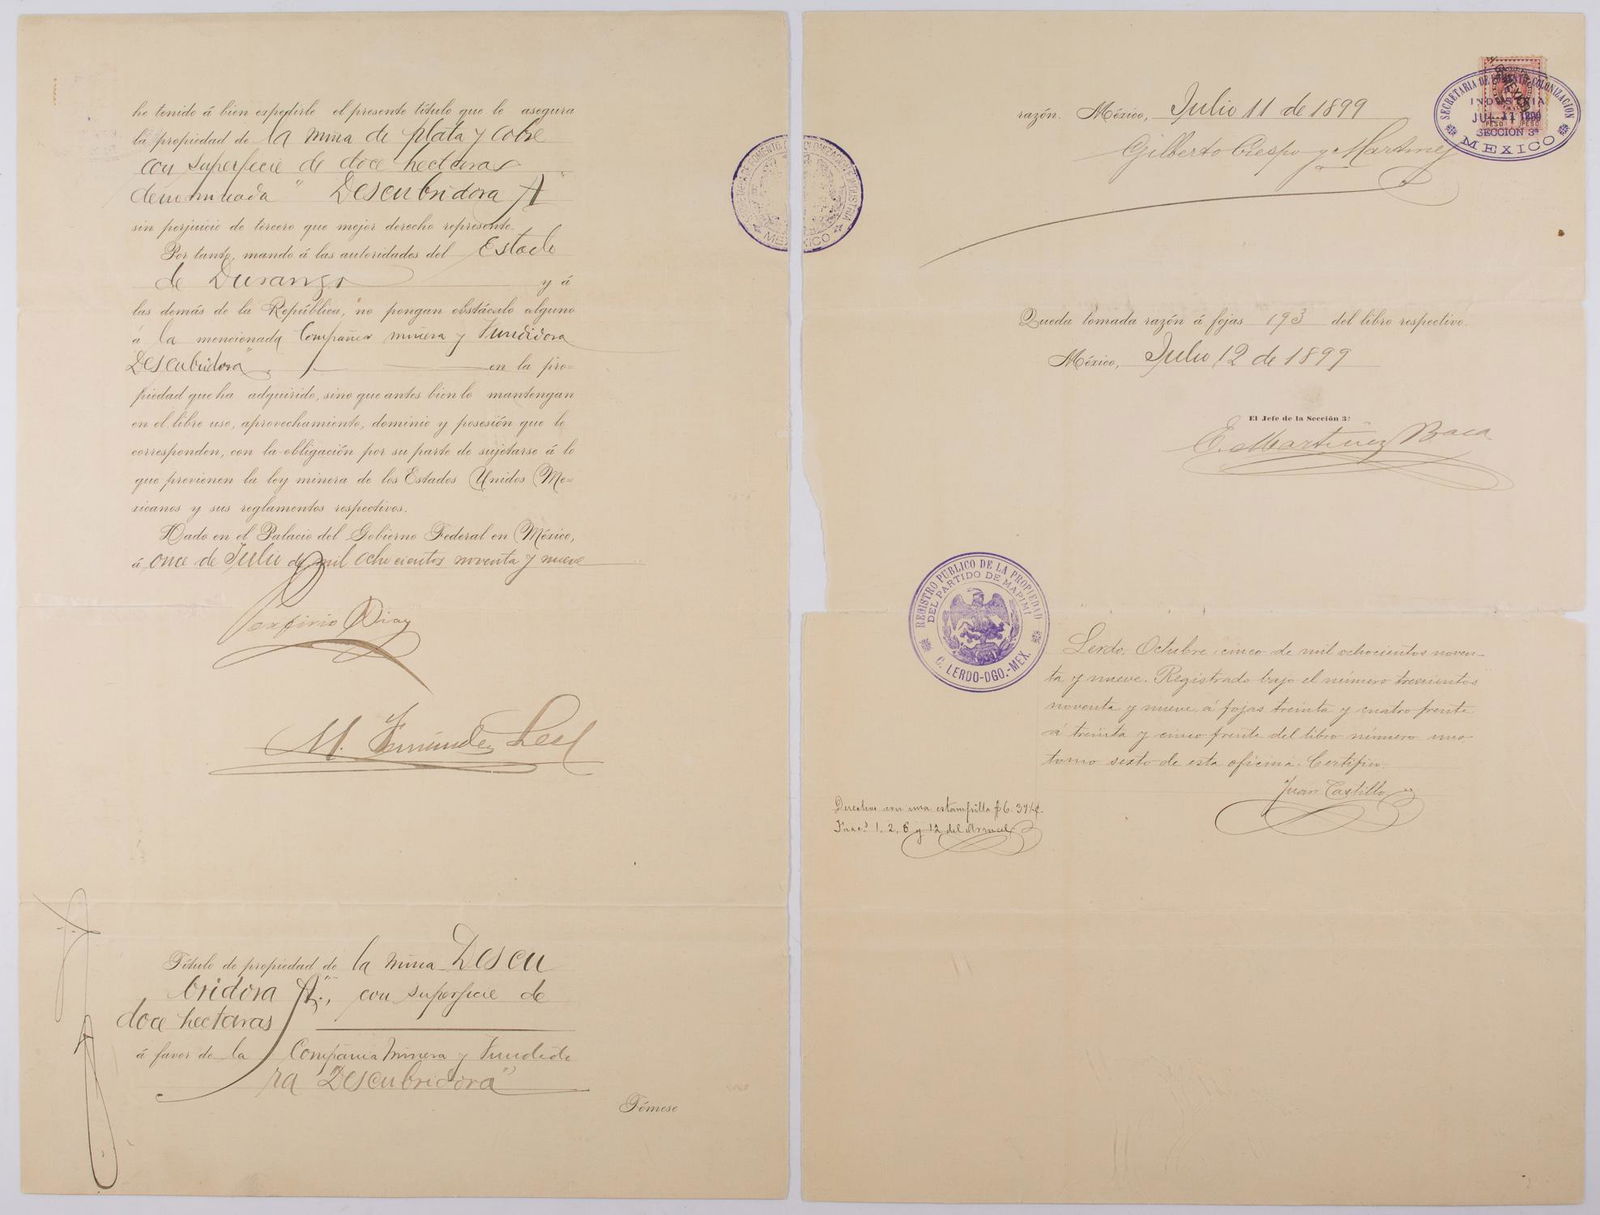 he tenido á bien expedirle el presente título que le asegura
la propiedad de la mina de plata y cobre
con superficie de doce hectaras
denominada "Descubridora A"
sin perjuicio de tercero que mejor derecho represente.
Por tanto, mando á las autoridades del Estado
de Durango y á
las demás de la República, no pongan obstáculo alguno
á la mencionada Compañia minera y Fundidora
Descubridora" en la pro-
piedad que ha adquirido, sino que antes bien lo mantengan
en el libre uso, aprovechamiento, dominio y posesión que le
corresponden, con la obligación por su parte de sujetarse á lo
que previenen la ley minera de los Estados Unidos Me-
xicanos y sus reglamentos respectivos.
Dado en el Palacio del Gobierno Federal en México,
á once de Julio de mil ochocientos noventa y nueve
Porfirio Diaz
M. Fernández Leal
Título de propiedad de la mina Descu
bridora A", con superficie de
doce hectaras
á favor de la Compañia Minera y Fundido
ra "Descubridora"
Tómese
MEXICO
razón. México, Julio 11 de 1899
Gilberto Crespo y Martínez
SECRETARIA DE FOMENTO COLONIZACION
INDUSTRIA
JUL 11 1899
SECCION 3ª
MEXICO
Queda tomada razón á fojas 193 del libro respectivo.
México, Julio 12 de 1899
El Jefe de la Sección 3ª
E. Martínez Baca
REGISTRO PUBLICO DE LA PROPIEDAD
DEL PARTIDO DE MAPIMI
C. LERDO-DGO.-MEX.
Lerdo, Octubre cinco de mil ochocientos noven-
ta y nueve. Registrado bajo el número trescientos
noventa y nueve á fojas treinta y cuatro frente
á treinta y cinco frente del libro número uno
tomo sexto de esta oficina. Certifico.
Juan Castillo
Derechos con una estampilla $6.
1, 2, 6 y 12 del Arancel